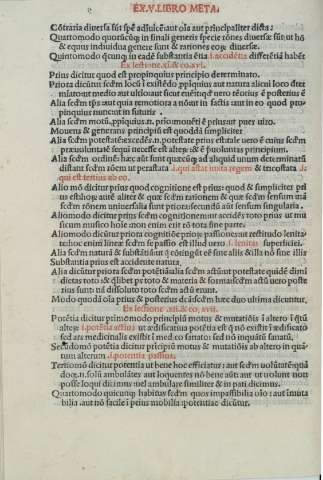 EX.V.LIBRO META.
Cōtraria diversa sūt spē adjuicē aut oīa aut principaliter dicta:
Quartomodo quorsūcqȝ in finali generis specie rōnes diversæ sūt: ut hō
& equus individua genere sunt & rationes eorȝ diversæ.
Quintomodo quæqȝ in eadē substantia ētia .i. accidētia differētiā habēt
Ex lectione .xi. & eo. xvi.
Prius dicitur quod est propinquius principio determinato.
Priora dicūtur secd̄m locū i existēdo ꝓpīquius aut natura alicui loco deter
minato ut medio aut ultīo aut sicut mētiqȝ ē uero rōtions & posterius ē
Alia secd̄m tps̄ aut quia remotiora a nūc in factis aut in eo quod pro-
pinquius nunc est in futuris.
Alia secd̄m motū. ꝓpīquius .n. prio mouēti ē prius ut puer uiro.
Mouens & generans principiū est quoddā simpliciter
Alia secd̄m potestatē excedēs .n. potestate prius est tale uero ē cuius secd̄m
præuoluntatē sequi necesse est alteȝ & posterius & ē uoluntas principium.
Alia secd̄m ordinē hæc aūt sunt quæcūqȝ ad aliquid unum determinatū
distant secd̄m rōem ut perastata .i. qui astat iuxta regem & tritostata .i.
qui est tertius ab eo.
Alio mō dicitur prius quod cognitione est prius: quod & simpliciter pri
us est: hoȝ autē aliter & quæ secd̄m rationem & quæ secd̄m sensum nā
secd̄m rōnem universalia sunt priora: secūdū aūt sensum singularia.
Aliomodo dicitur prius secd̄m cognitionem ut accidēs toto prius ut mu
sicum musico hoīe non enim erit rō tota sine parte.
Aliomodo dicūtur priora cognitiōe priorȝ passiones ut rectitudo leuita-
te hoc enim lineæ secd̄m se passio est illud uero .i. lenitas superficiei.
Alia secd̄m naturā & substātiā ut q̄ cōtingūt eē sine aliis & illa nō sine illis
Substantia prius est accidente natura.
Alia dicūtur priora secd̄m potētiā alia secd̄m actū ut potestate quidē dimi
dietas toto & q̄libet ps̄ toto & materia & forma secd̄m actū uero poste
riora sunt nā dissoluto toto secd̄m actū erunt.
Modo quodā oīa prius & posterius dcā secd̄m hæc duo ultima dicuntur.
Ex lectione .xii. & eo. xvii.
Potētia dicitur primo modo principiū motus & mutatiōis i altero i q̄tū
alteȝ .i. potētia actius ut ædificatiua potētia est q̄ nō existit i ædificato
sed ars medicinalis existit i medico sanato: sed nō inquātū sanatū.
Secūdomō potētia dicitur principiū motus & mutatiōis ab altero in quā-
tum alterum .i. potentia passiua.
Tertiomō dicitur potentia ut bene hoc efficiatur: aut secd̄m uolūtatē quā
doqȝ .n. solū ambulātes aut loquentes nō bene aut nō ut uolunt non
posse loqui dicimus uel ambulare similiter & in pati dicimus.
Quartomodo quicūqȝ habitus secd̄m quos impassibilia oīo: aut īmuta
bilia aut nō facile i prius mobilia: potentiae dicūtur.